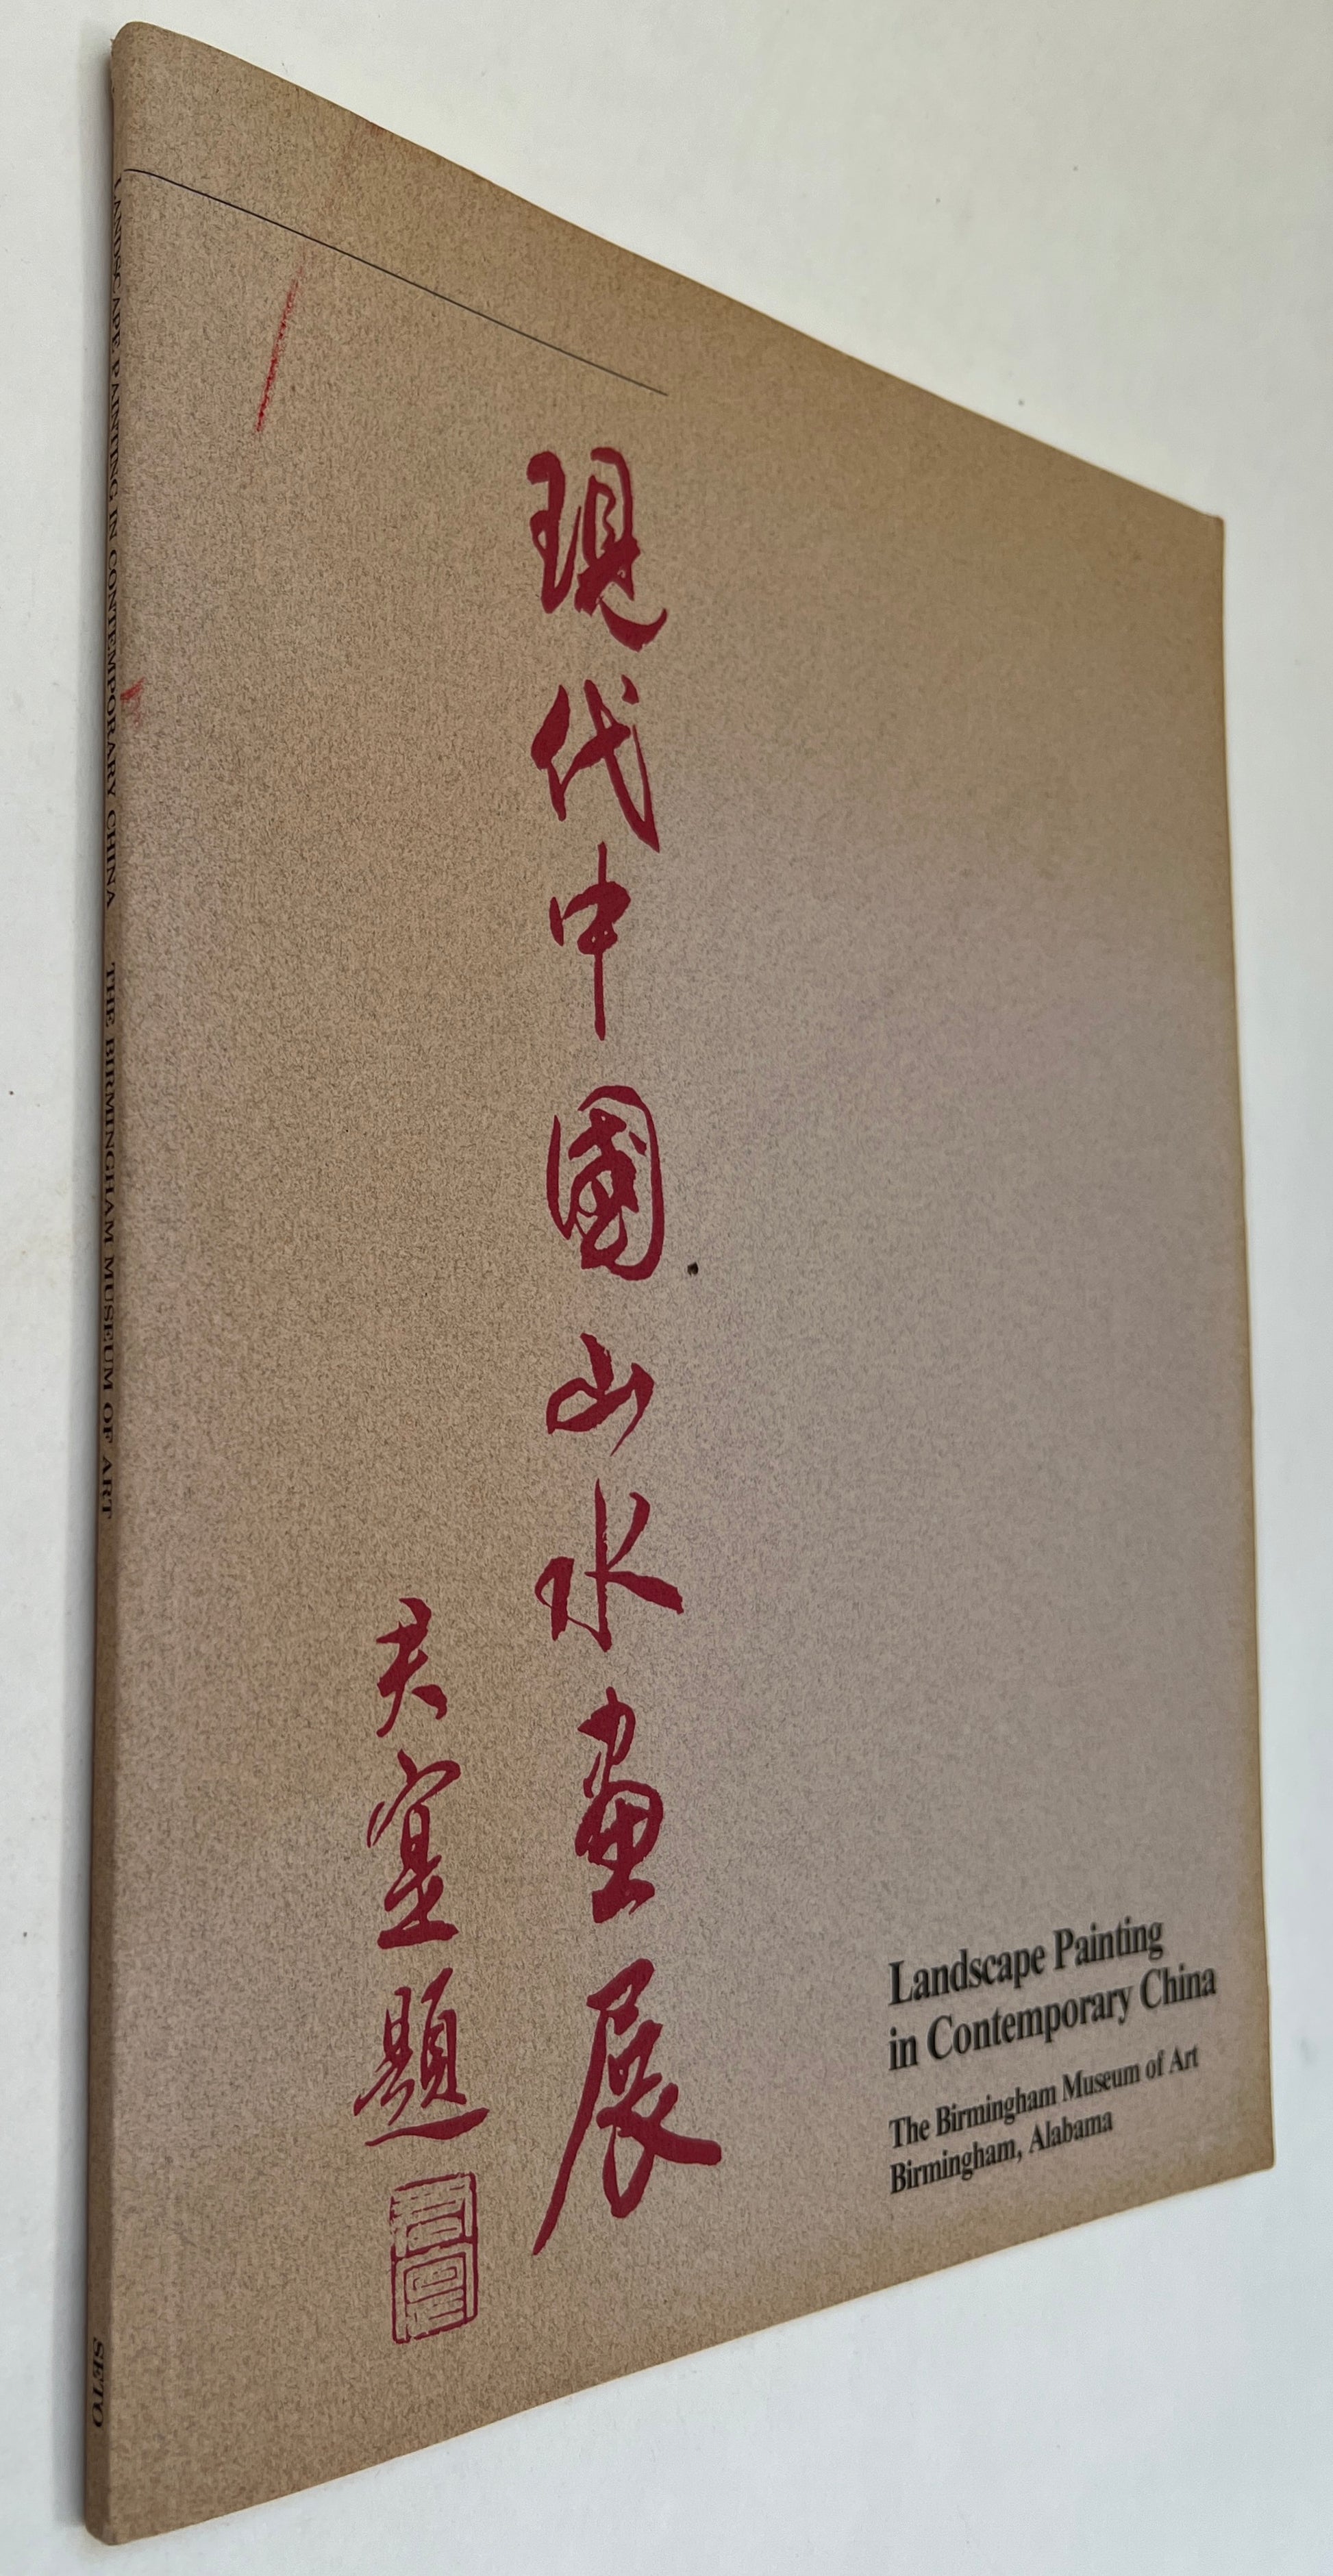 LANDSCAPE PAINTING IN CONTEMPORARY CHINA THE BIRMINGHAM MUSEUM OF ART SETO
現代中國山水畫展
君寔題
Landscape Painting
in Contemporary China
The Birmingham Museum of Art
Birmingham, Alabama